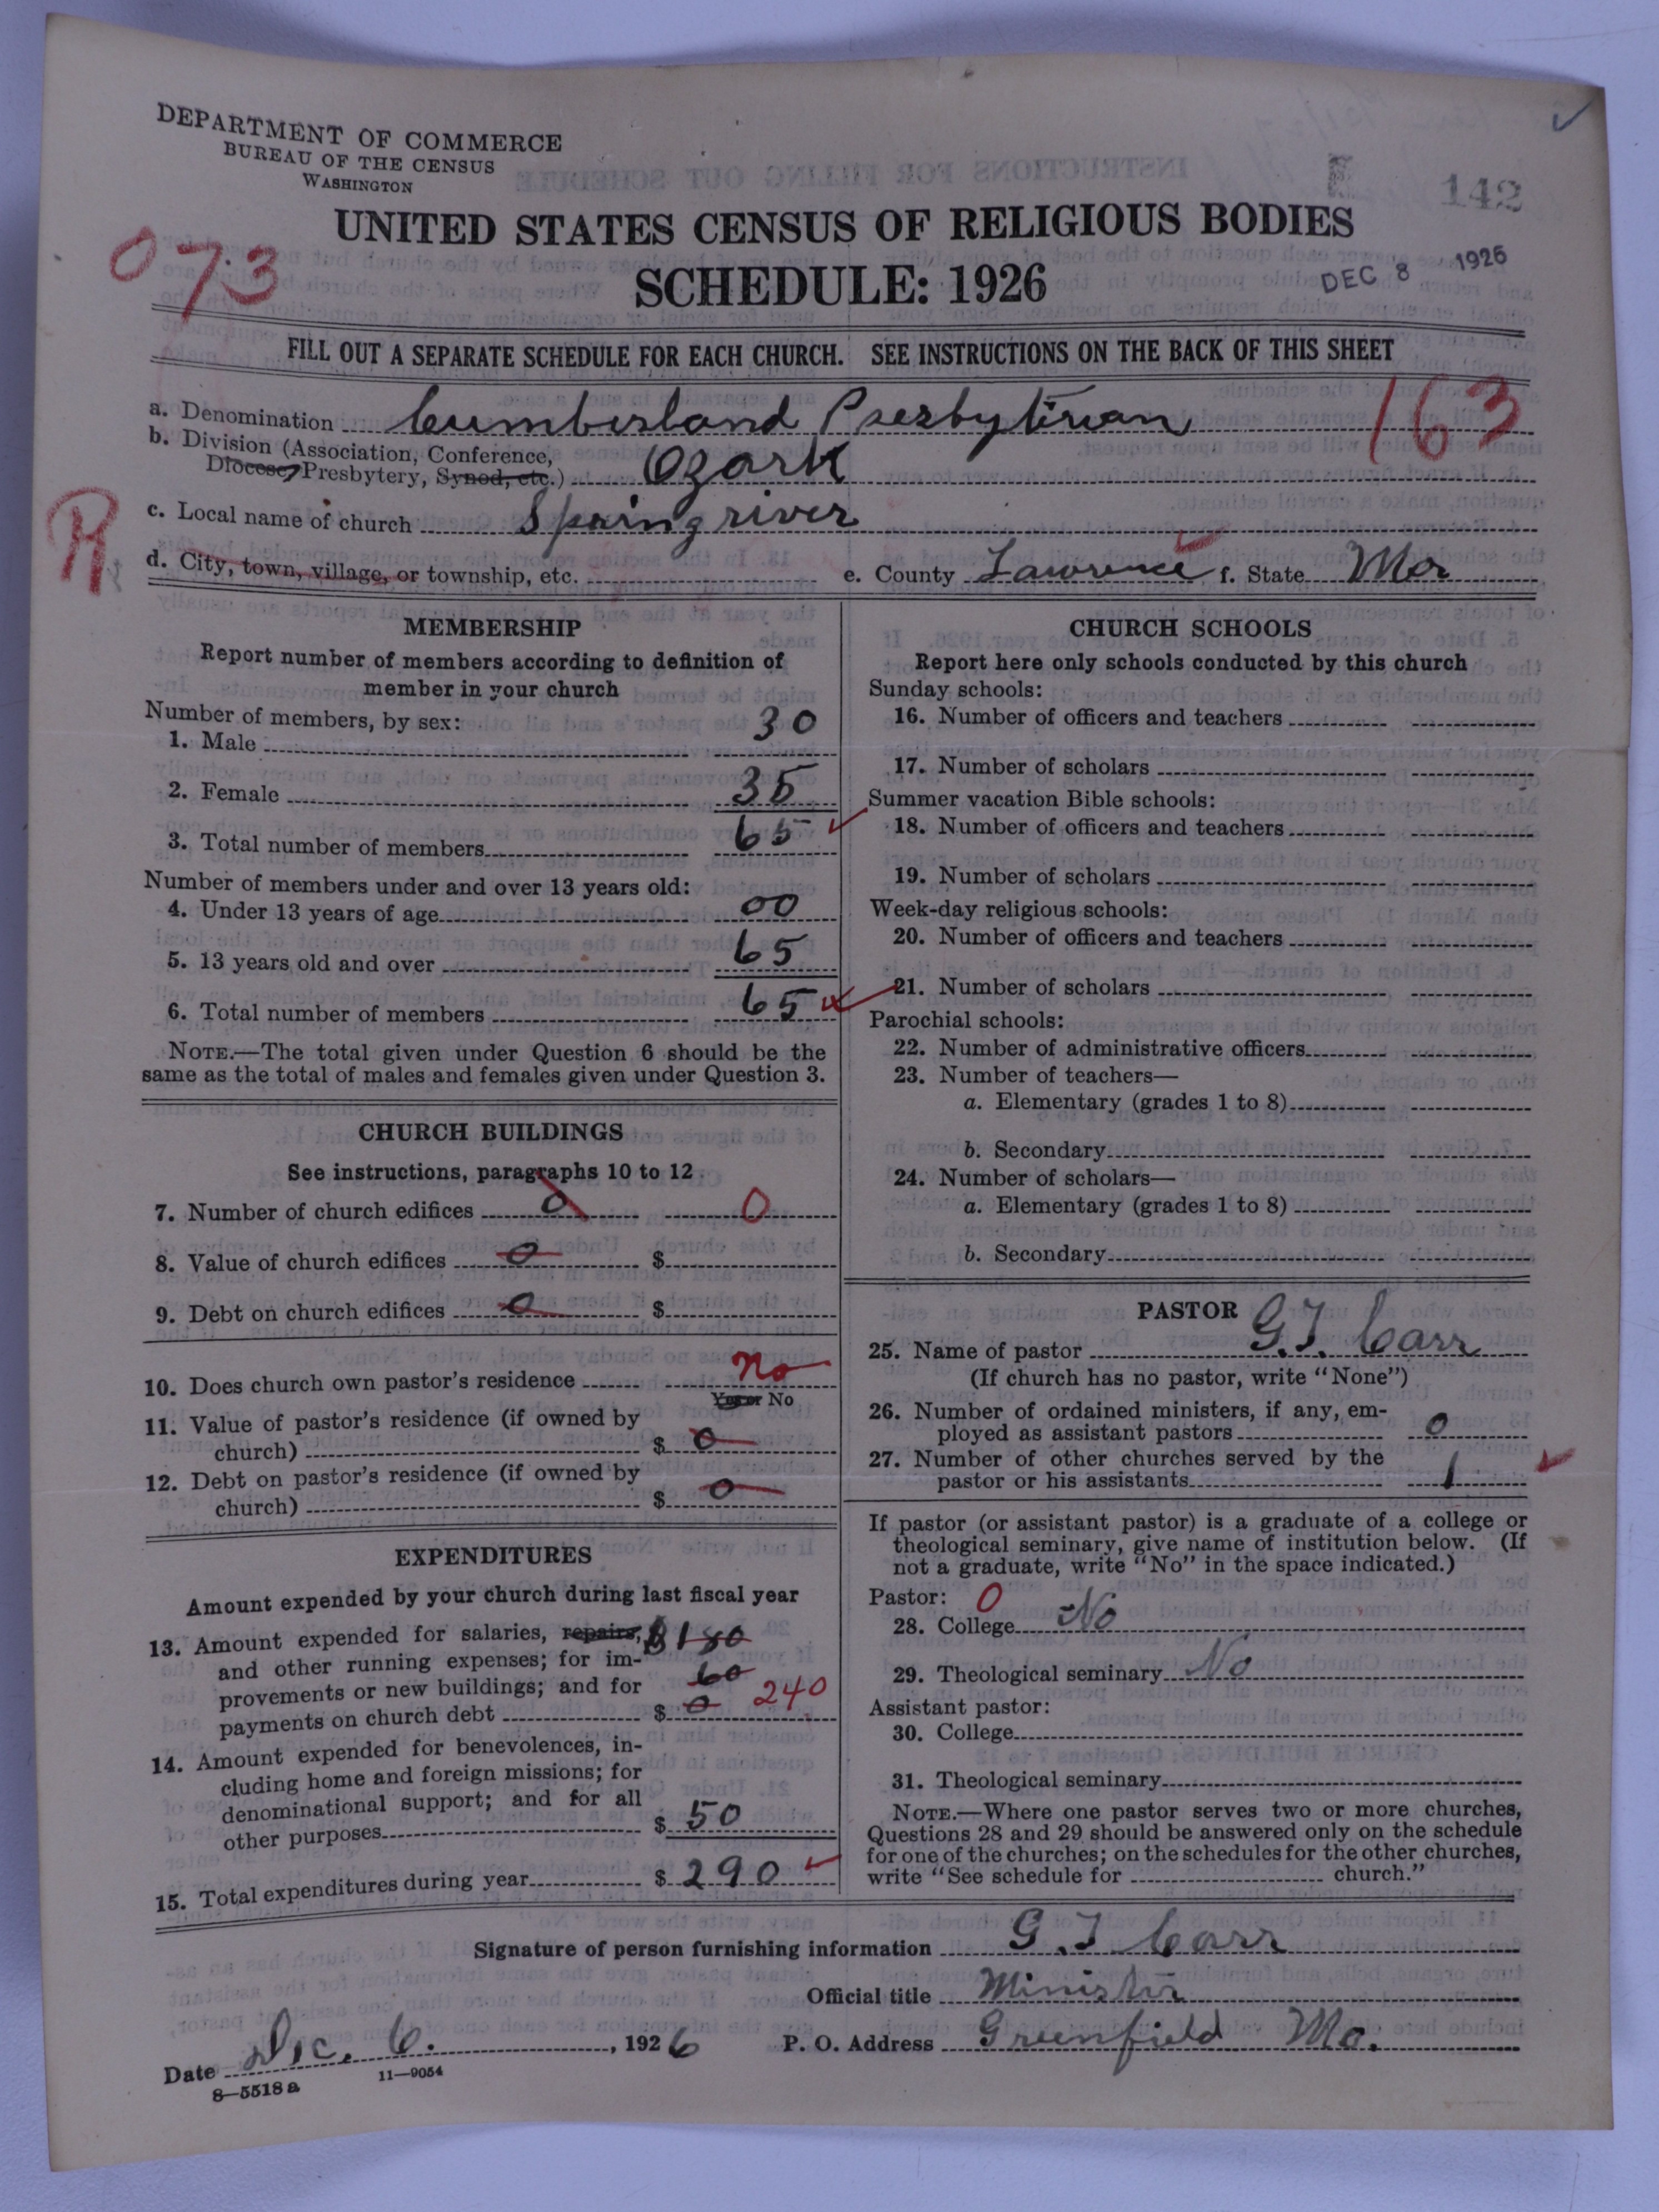 DEPARTMENT OF COMMERCE
BUREAU OF THE CENSUS
WASHINGTON
142
UNITED STATES CENSUS OF RELIGIOUS BODIES
073
SCHEDULE: 1926
DEC 8 1926
FILL OUT A SEPARATE SCHEDULE FOR EACH CHURCH. SEE INSTRUCTIONS ON THE BACK OF THIS SHEET
a. Denomination Cumberland Presbyterian
163
b. Division (Association, Conference,
Diocese, Presbytery, Synod, etc.) Ozark
c. Local name of church Spring river
R
d. City, town, village, or township, etc. e. County Lawrence f. State Mo
MEMBERSHIP
Report number of members according to definition of
member in your church
Number of members, by sex:
1. Male 30
2. Female 35
3. Total number of members 65
Number of members under and over 13 years old:
4. Under 13 years of age 00
5. 13 years old and over 65
6. Total number of members 65
NOTE.—The total given under Question 6 should be the
same as the total of males and females given under Question 3.
CHURCH BUILDINGS
See instructions, paragraphs 10 to 12
7. Number of church edifices 0 0
8. Value of church edifices 0 $
9. Debt on church edifices 0 $
10. Does church own pastor's residence no
Yes or No
11. Value of pastor's residence (if owned by
church) $ 0
12. Debt on pastor's residence (if owned by
church) $ 0
EXPENDITURES
Amount expended by your church during last fiscal year
13. Amount expended for salaries, repairs, $180
and other running expenses; for im-
provements or new buildings; and for 60
payments on church debt $ 0 240
14. Amount expended for benevolences, in-
cluding home and foreign missions; for
denominational support; and for all
other purposes $ 50
15. Total expenditures during year $ 290
CHURCH SCHOOLS
Report here only schools conducted by this church
Sunday schools:
16. Number of officers and teachers
17. Number of scholars
Summer vacation Bible schools:
18. Number of officers and teachers
19. Number of scholars
Week-day religious schools:
20. Number of officers and teachers
21. Number of scholars
Parochial schools:
22. Number of administrative officers
23. Number of teachers—
a. Elementary (grades 1 to 8)
b. Secondary
24. Number of scholars—
a. Elementary (grades 1 to 8)
b. Secondary
PASTOR
25. Name of pastor G.T. Carr
(If church has no pastor, write "None")
26. Number of ordained ministers, if any, em-
ployed as assistant pastors 0
27. Number of other churches served by the
pastor or his assistants 1
If pastor (or assistant pastor) is a graduate of a college or
theological seminary, give name of institution below. (If
not a graduate, write "No" in the space indicated.)
Pastor: 0
28. College No
29. Theological seminary No
Assistant pastor:
30. College
31. Theological seminary
NOTE.—Where one pastor serves two or more churches,
Questions 28 and 29 should be answered only on the schedule
for one of the churches; on the schedules for the other churches,
write "See schedule for church."
Signature of person furnishing information G.T Carr
Official title Minister
Date Dec. 6. , 1926 P. O. Address Greenfield Mo.
8—5518 a 11—9054